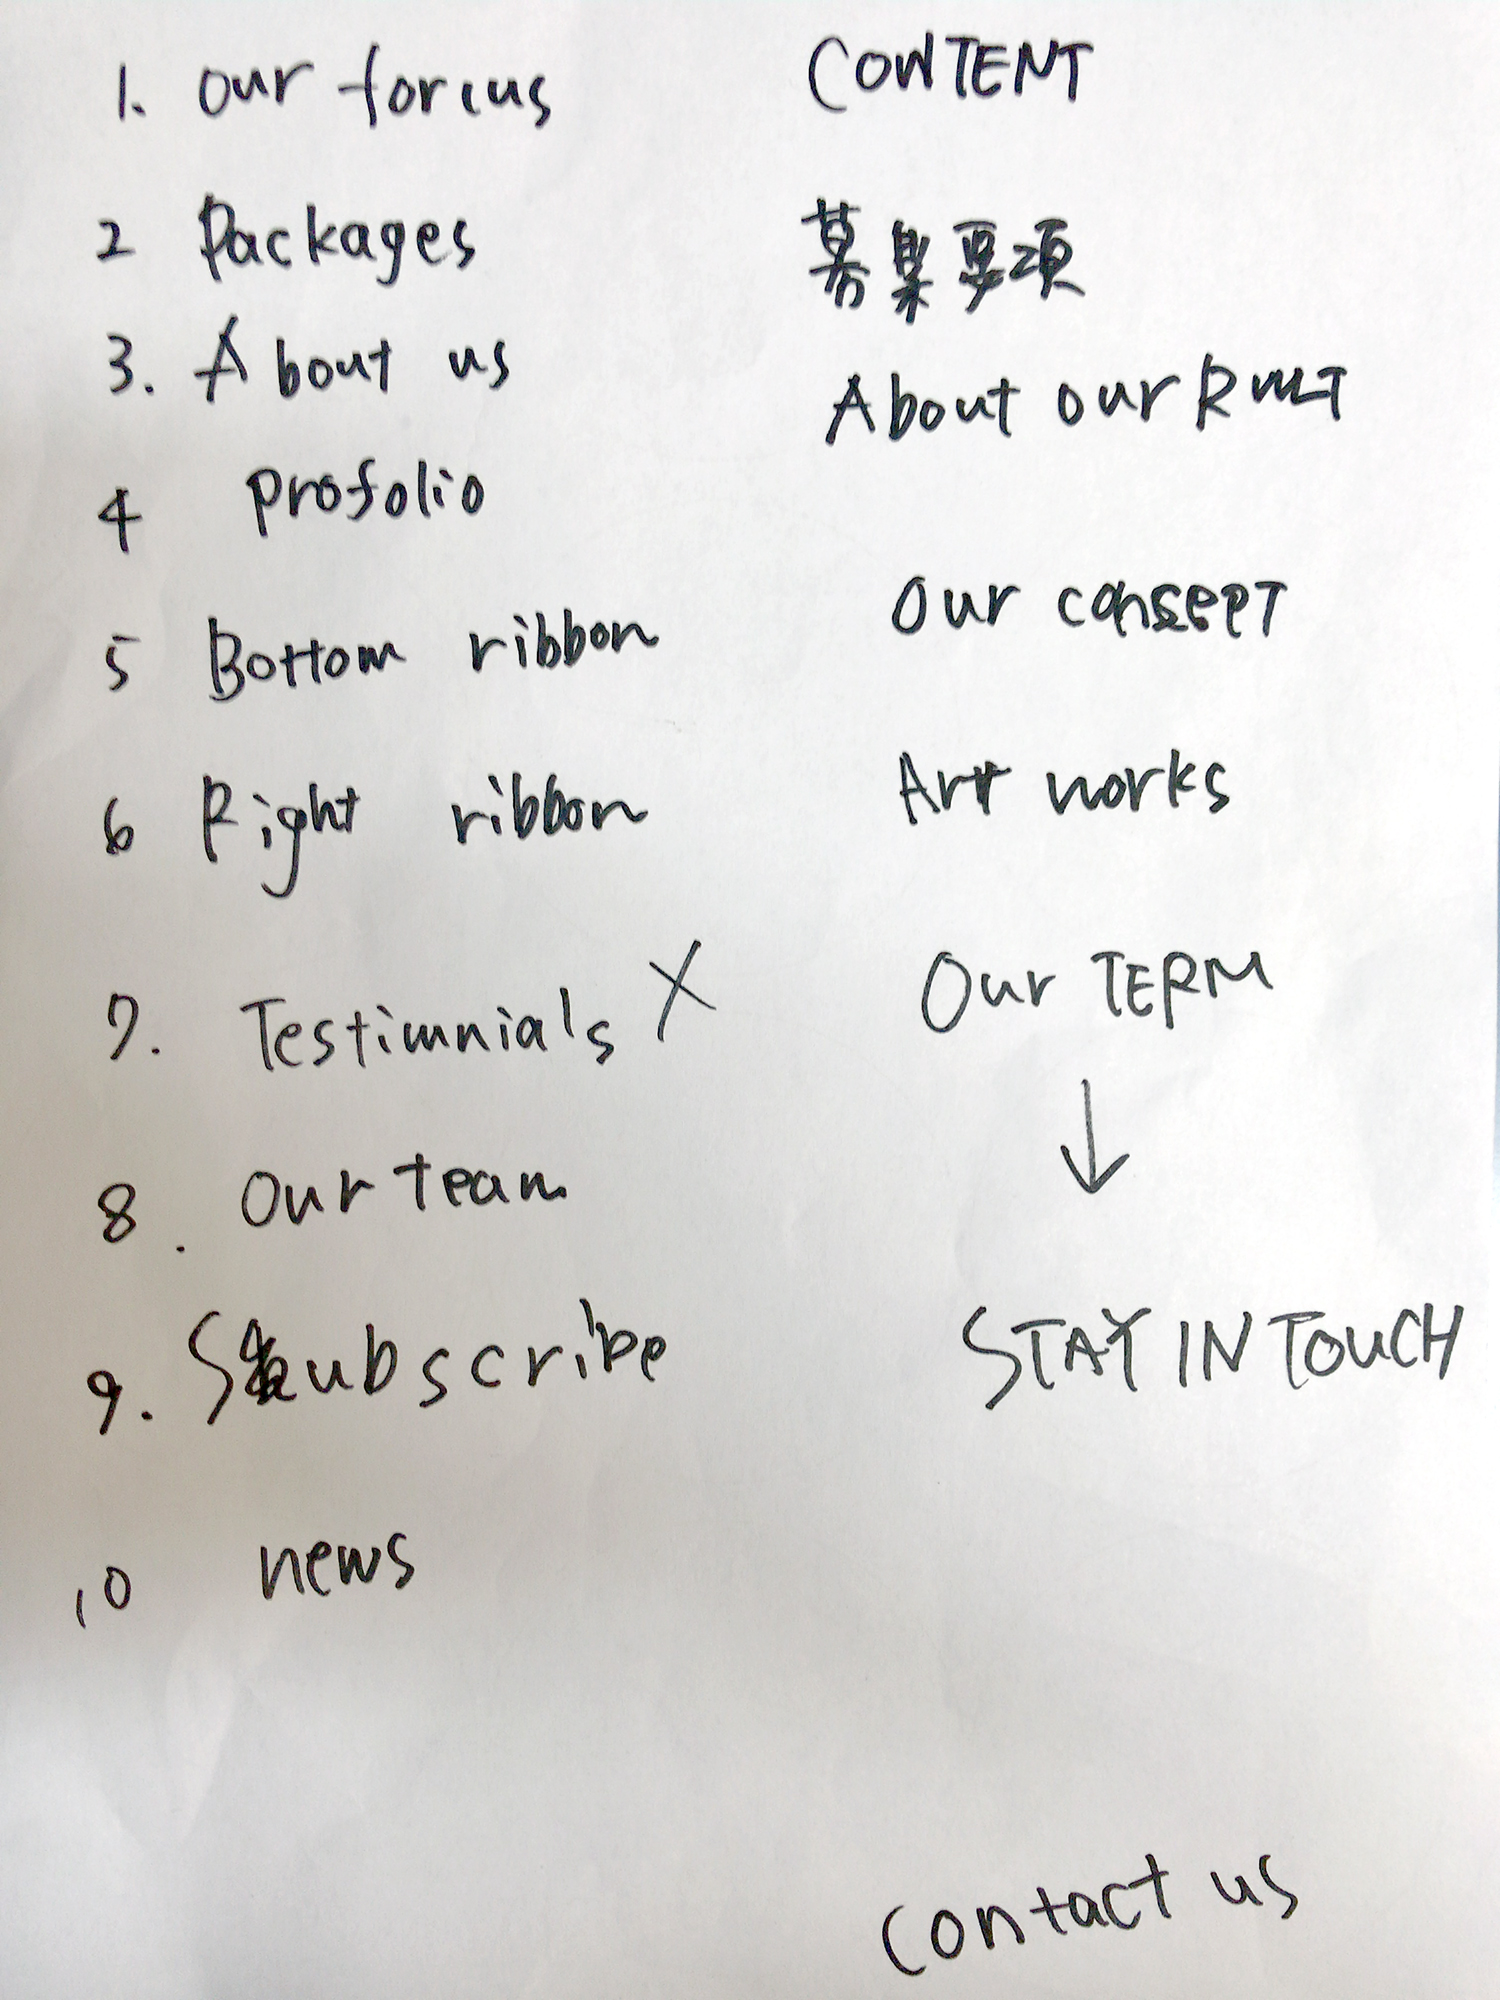 1. our forcus
CONTENT
2 Packages
募集要項
3. About us
About our RMT
4 profolio
5 Bottom ribbon
Our consept
6 Right ribbon
Art works
7. Testimnials X
Our TERM
↓
8. Our team
9. Subscribe
STAY IN TOUCH
10 news
Contact us